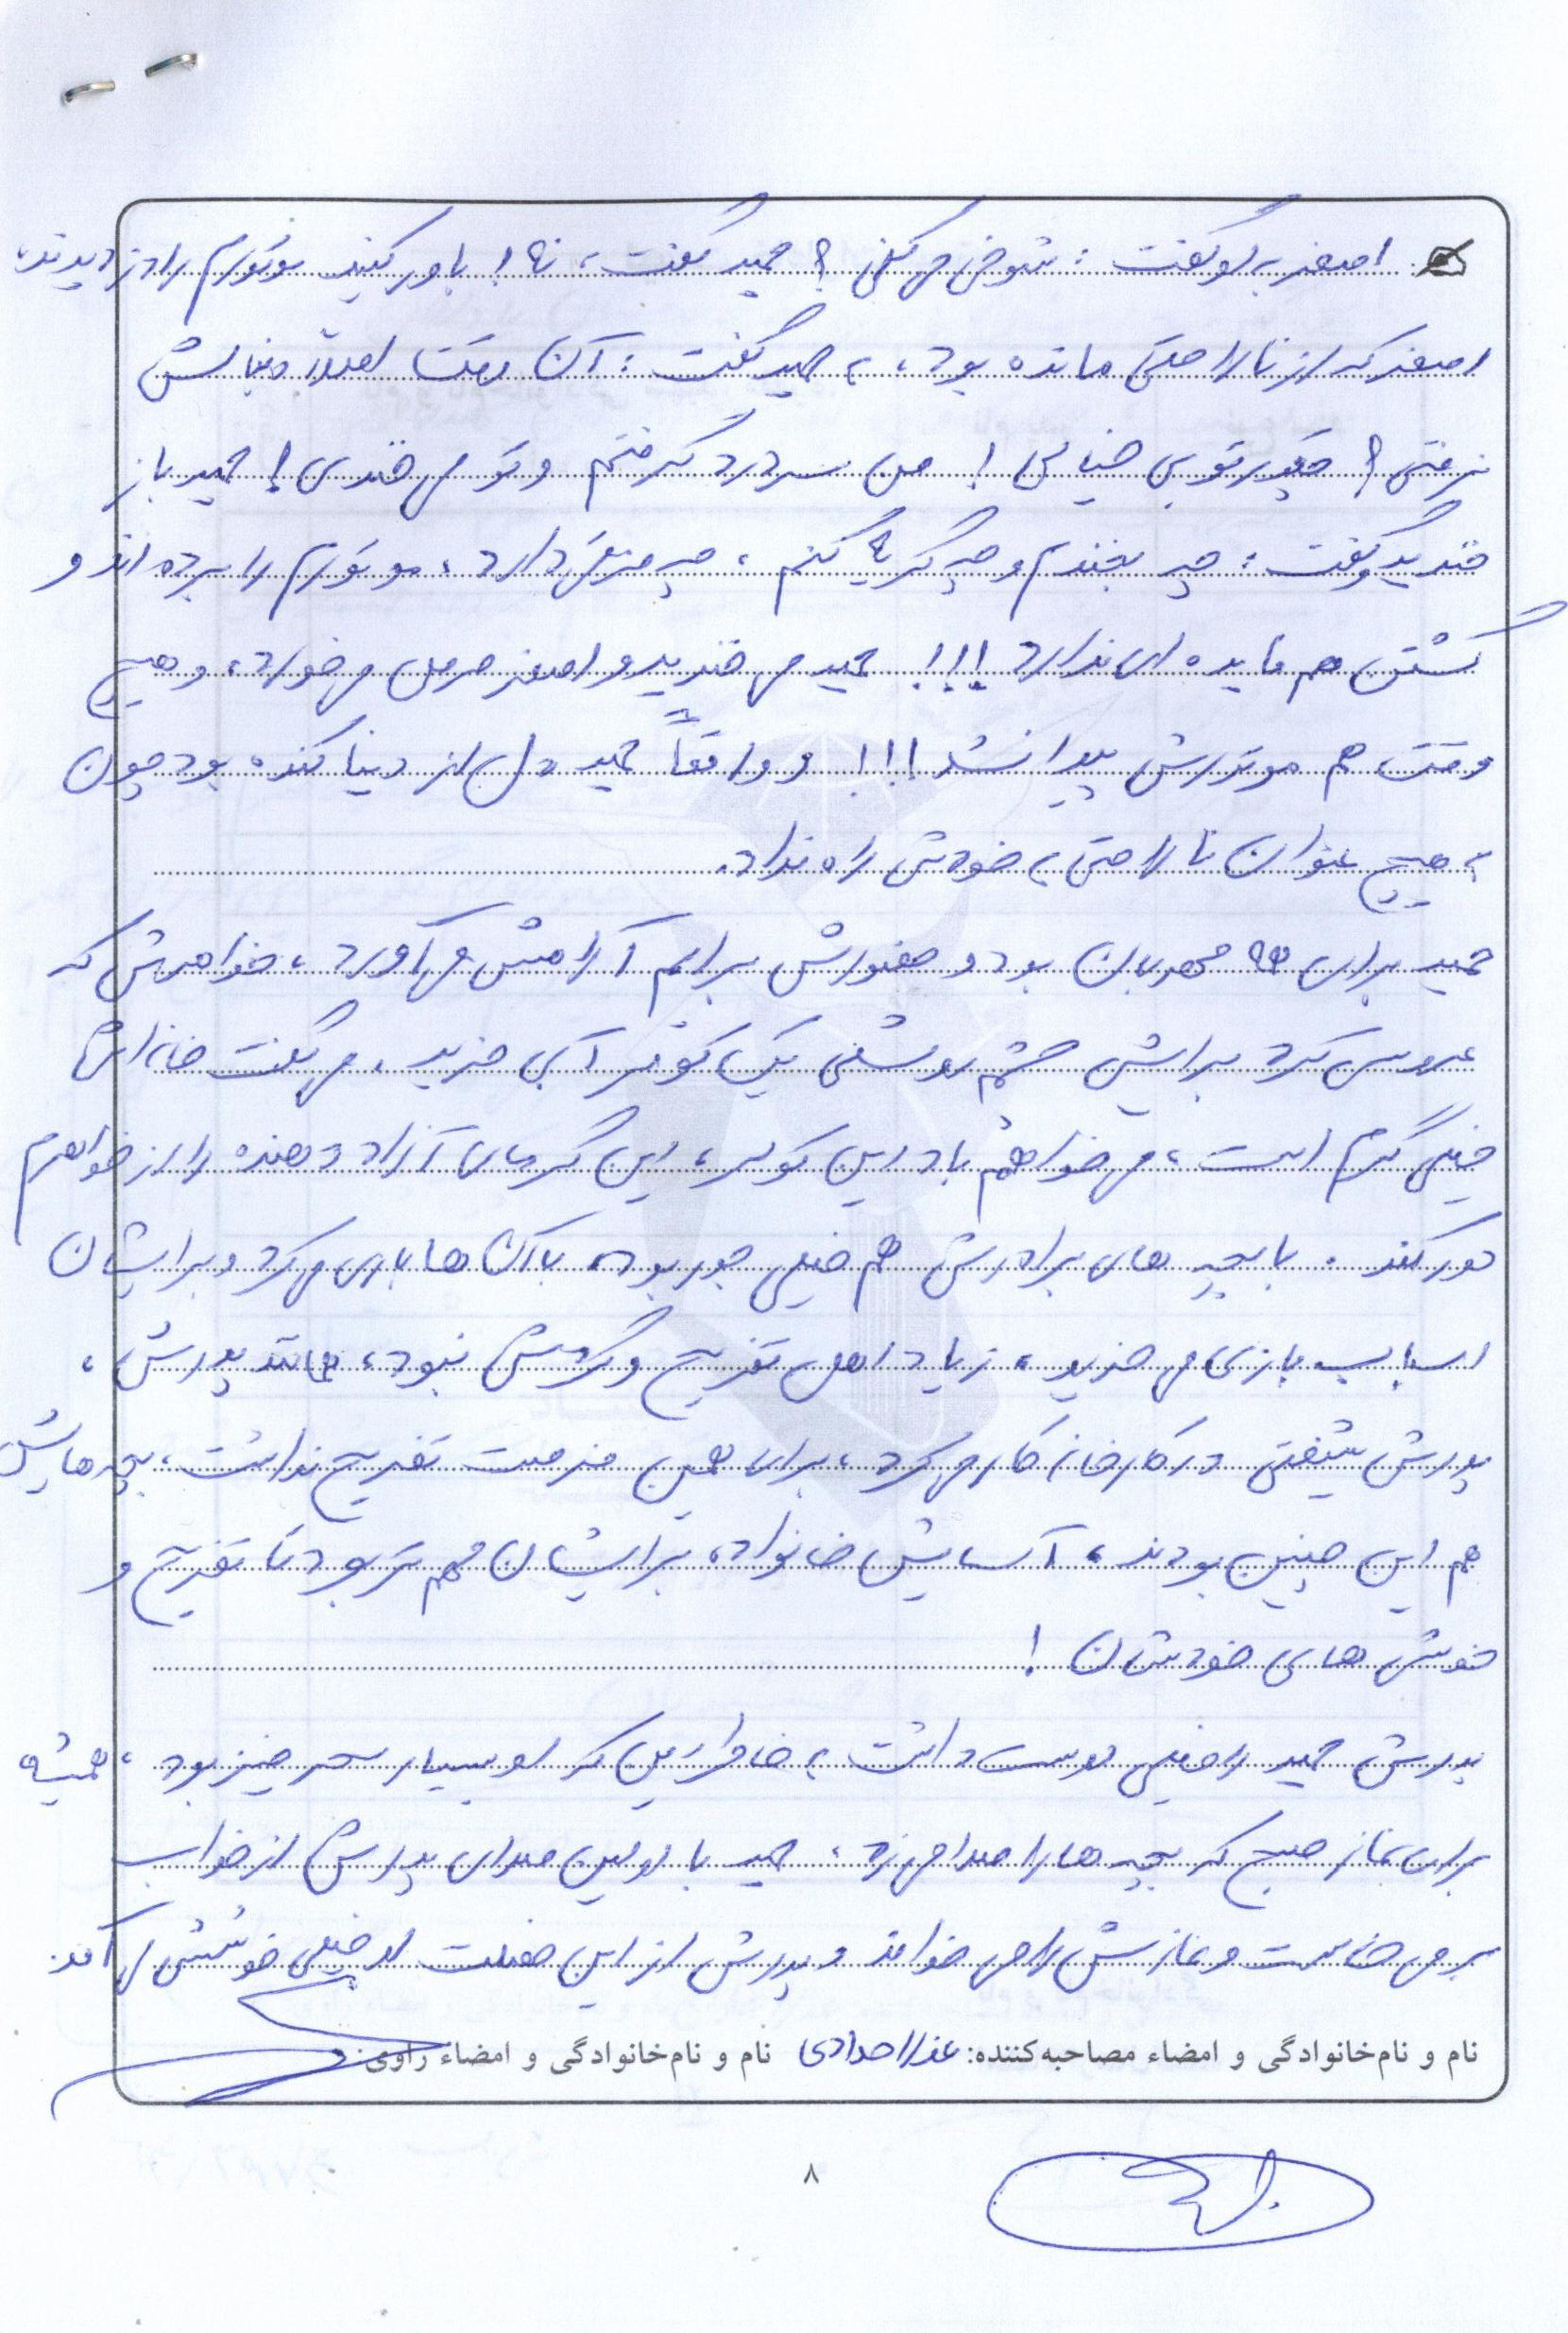 اصغر به او گفت: شوخی می کنی؟ حمید گفت، نه! باور کنید موتورم را دزدیدند،
اصغر که از ناراحتی مانده بود، به حمید گفت: آن وقت اصلاً دنبالش
نرفتی؟ چقدر تو بی خیالی! من سردرد گرفتم و تو می خندی! حمید باز
خندید و گفت: چه بخندم و چه گریه کنم، چه فرقی دارد، موتورم را برده اند و
گشتن هم فایده ای ندارد!!! حمید می خندید و اصغر حرص می خورد، و هیچ
وقت هم موتورش پیدا نشد!!! و واقعاً حمید دل از دنیا کنده بود چون
به هیچ عنوان ناراحتی به خودش راه نداد.
حمید برای همه مهربان بود و حضورش برایم آرامش می آورد، خواهرش که
عروسی کرد برایش چشم روشنی یک کولر آبی خرید، می گفت خانه اش
خیلی گرم است، می خواهم باد این کولر، این گرمای آزار دهنده را از خواهرم
دور کند. با بچه های برادرش هم خیلی جور بود، با آن ها بازی می کرد و برایشان
اسباب بازی می خرید، زیاد اهل تفریح و گردش نبود، همانند پدرش،
پدرش شیفتی در کارخانه کار می کرد، برای همین فرصت تفریح نداشت، بچه هایش
هم این چنین بودند، آسایش خانواده برایشان مهم تر بود تا تفریح و
خوشی های خودشان!
پدرش حمید را خیلی دوست داشت به خاطر این که او بسیار سحر خیز بود، همیشه
برای نماز صبح که بچه ها را صدا می زد، حمید با اولین صدای پدرش از خواب
بر می خاست و نمازش را می خواند و پدرش از این خصلت او خیلی خوشش می آمد.
نام و نام‌خانوادگی و امضاء مصاحبه‌کننده: عذرا حدادی نام و نام‌خانوادگی و امضاء راوی:
۸